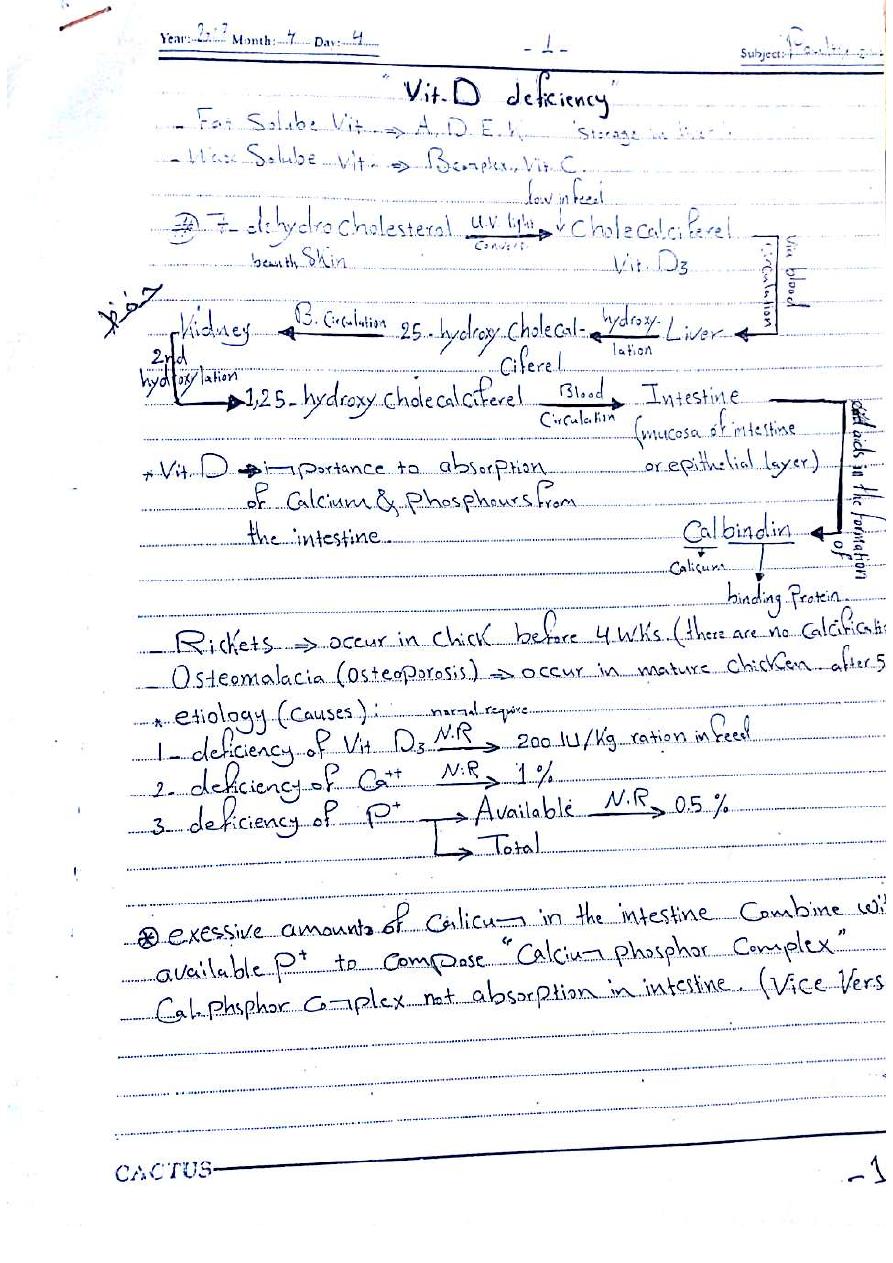 Year: Month: 4 Day: 4
- 1 -
Subject: Poultry
"Vit. D deficiency"
- Fat Soluble Vit. ⇒ A, D, E, K "Storage in
- Soluble Vit. ⇒ B complex, Vit C.
low in feed
7- dehydro Cholesterol U.V. light ↓ Cholecalciferel
Convert
beanth Skin Vit. D3
Via blood
Circulation
Kidney B. Circulation 25-hydroxy Cholecal- hydroxy- Liver
lation
Ciferel
2nd
hydroxylation
1,25-hydroxy Cholecalciferel Blood Intestine
Circulation
(mucosa of intestine
or epithelial layer)
aids in the formation
of
* Vit. D → importance to absorption
of Calcium & Phosphours from
the intestine.
Calbindin
Caliçum
binding Protein.
- Rickets ⇒ occur in chick before 4 WKs. (there are no Calcificati
- Osteomalacia (Osteoporosis) ⇒ occur in mature chicken after 5
* etiology (Causes): normal require
1- deficiency of Vit D3 N.R → 200 IU/Kg ration in feed
2- deficiency of Ca++ N.R → 1%
3- deficiency of P+ → Available N.R → 0.5 %
→ Total
⊛ exessive amounts of Calicum in the intestine Combine wi
available P+ to Compose "Calcium phosphor Complex"
Cal. Phsphor Complex not absorption in intestine. (Vice Vers
CACTUS
-1